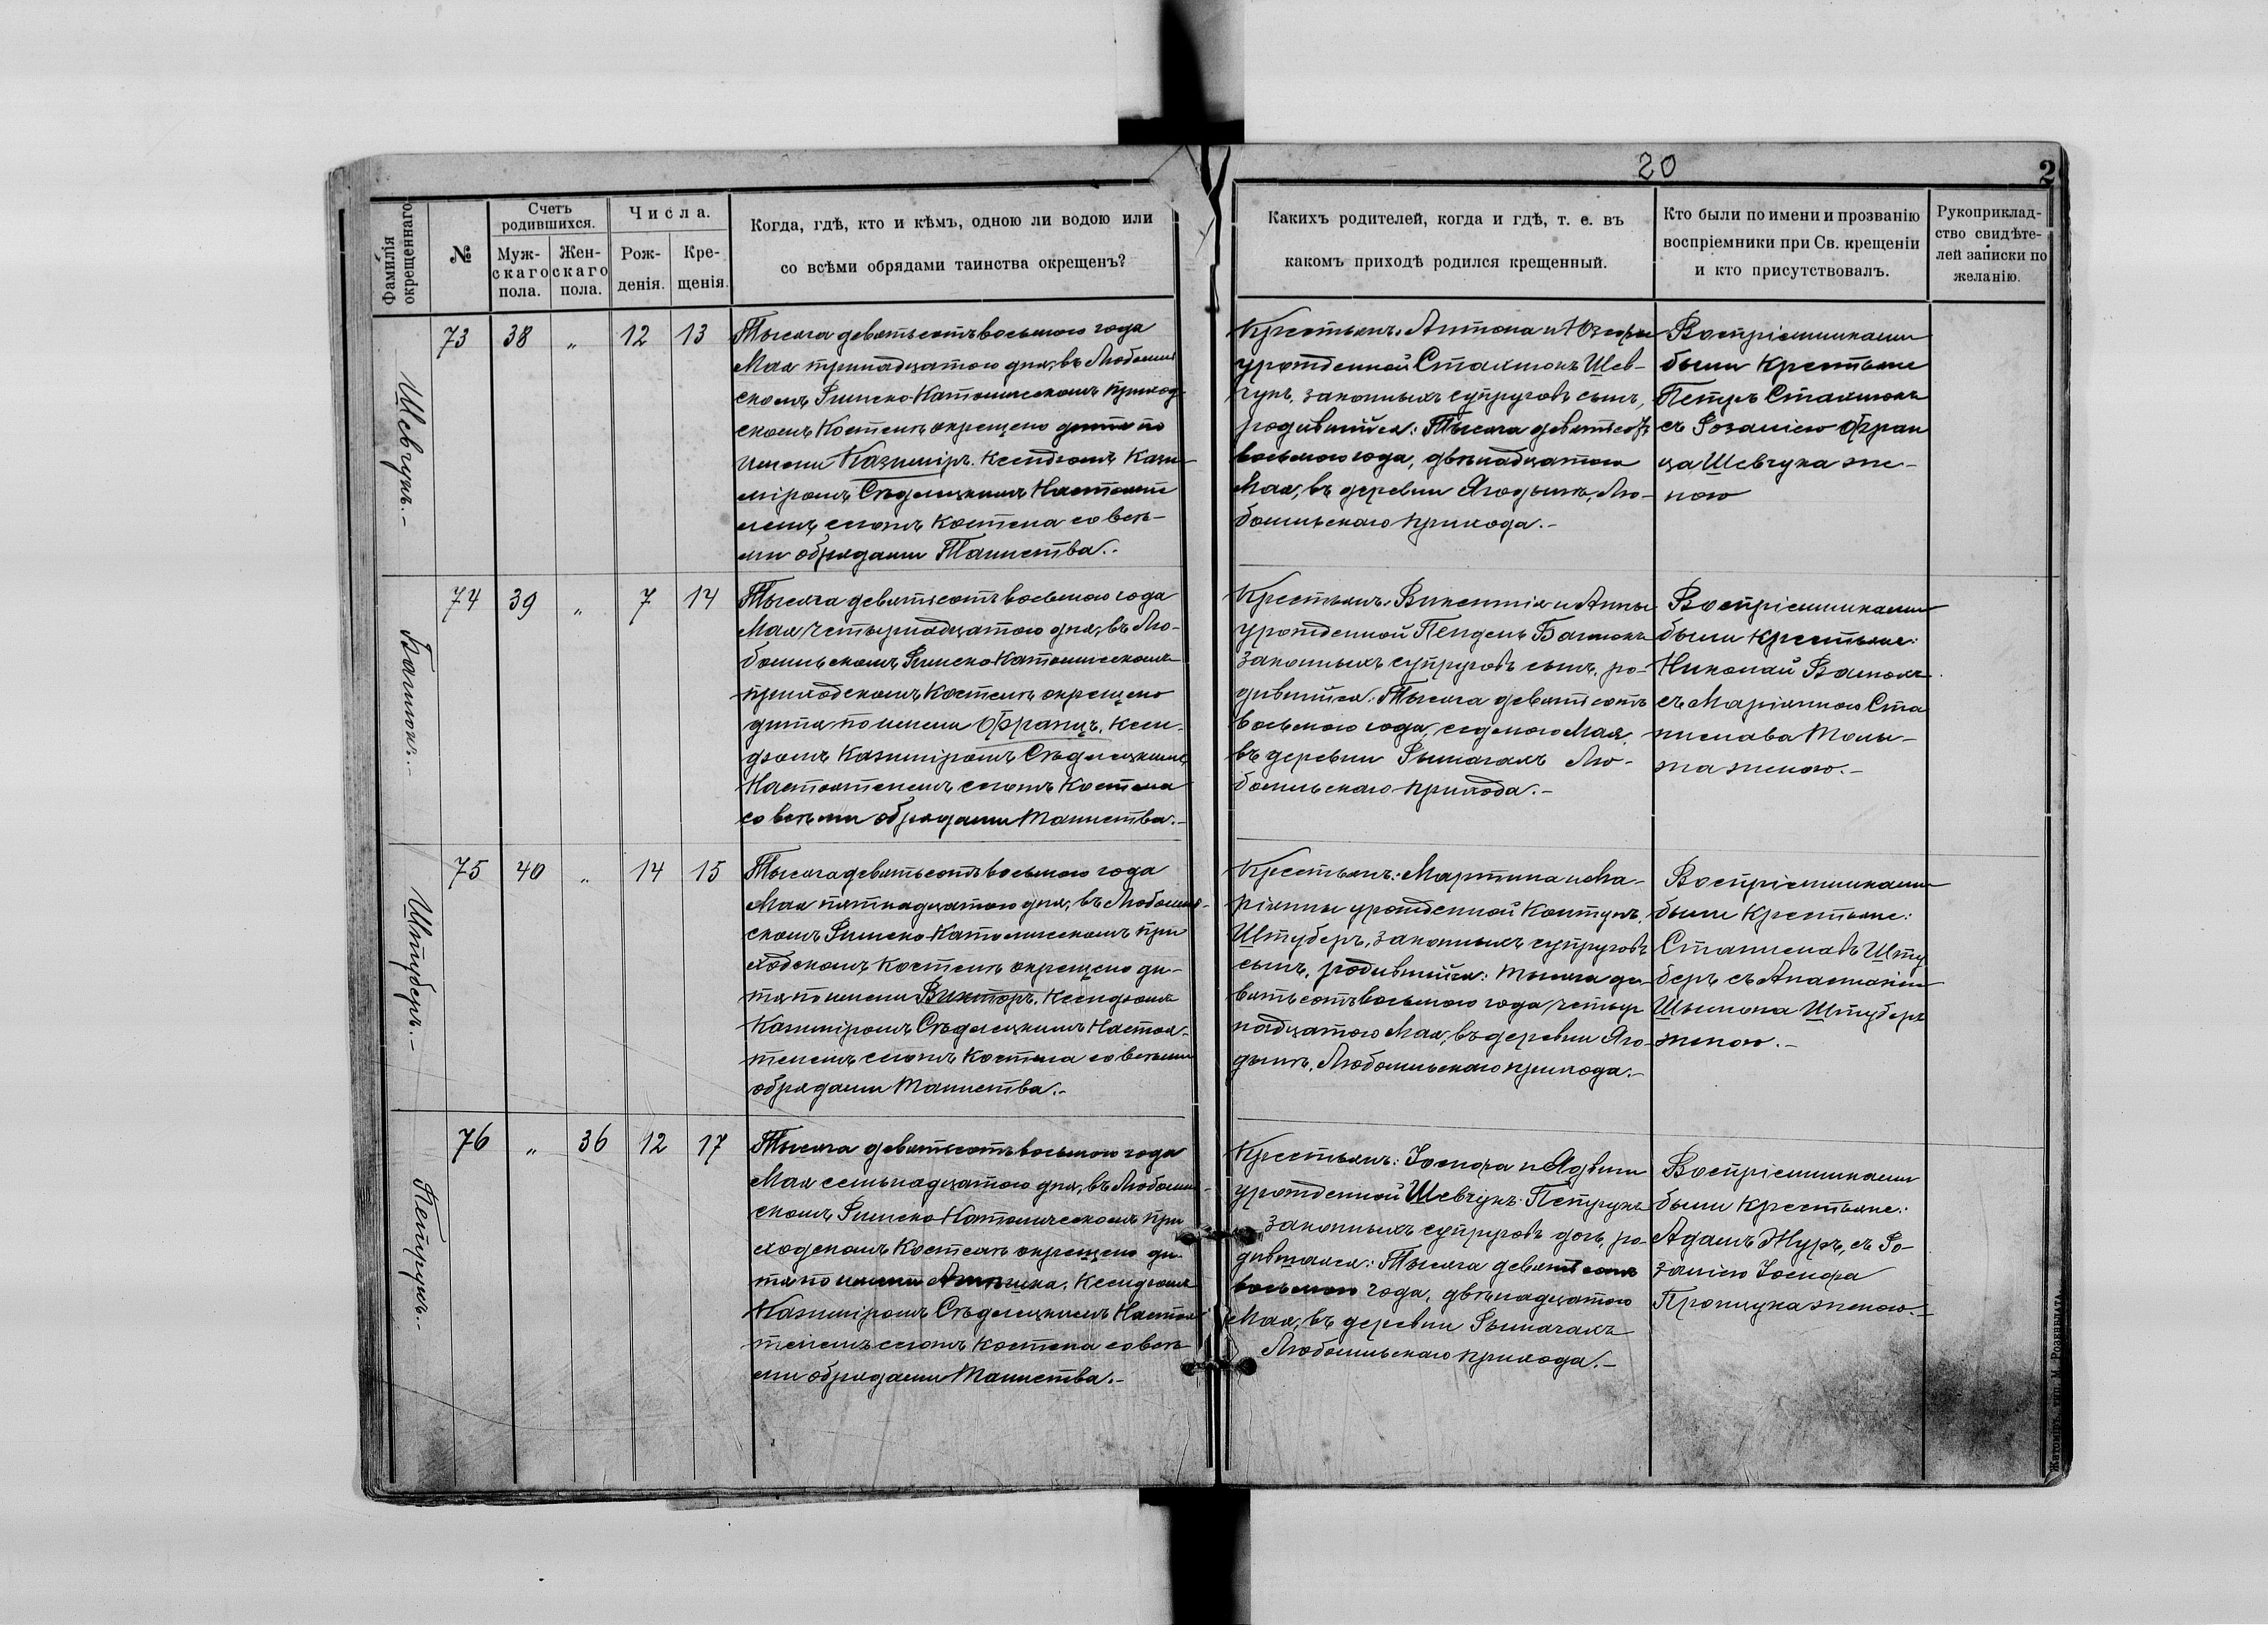 20
2
Фамилія окрещеннаго.
№
Счетъ родившихся.
Муж-скаго пола.
Жен-скаго пола.
Числа.
Рож-денія.
Кре-щенія.
Когда, гдѣ, кто и кѣмъ, одною ли водою или
со всѣми обрядами таинства окрещенъ?
Какихъ родителей, когда и гдѣ, т. е. въ
какомъ приходѣ родился крещенный.
Кто были по имени и прозванію
воспріемники при Св. крещеніи
и кто присутствовалъ.
Рукоприклад-
ство свидѣте-
лей записки по
желанію.
Шевчукъ.-
73 38 „ 12 13
Тысяча девятьсотъ восьмого года
Мая тринадцатого дня, въ Любомль
скомъ Римско-Католическомъ приход-
скомъ Костелѣ окрещено дитя по
имени Казиміръ. Ксендзомъ Кази-
міромъ Сѣдлецкимъ Настояте
лемъ сегожъ Костела со всѣ-
ми обрядами Таинства.-
Крестьянъ: Антона и Юзефы
урожденной Стахнюкъ Шев-
чукъ, законныхъ супруговъ сынъ,
родившійся: Тысяча девятьсотъ
восьмого года, двѣнадцатого
Мая, въ деревни Ягодынѣ, Лю-
бомльскаго прихода.-
Воспріемниками
были Крестьяне
Петръ Стахнюкъ
съ Розаліею Фран
ца Шевчука же-
ною
74 39 „ 7 14
Тысяча девятьсотъ восьмого года
Мая четырнадцатого дня, въ Лю-
бомльскомъ Римско-Католическомъ
приходскомъ Костелѣ окрещено
дитя по имени Францъ. Ксен-
дзомъ Казиміромъ Сѣдлецкимъ
Настоятелемъ сегожъ Костела
со всѣми обрядами Таинства.-
Крестьянъ: Викентія и Анны
урожденной
законныхъ супруговъ сынъ, ро-
дившійся: Тысяча девятьсотъ
восьмого года, седьмого Мая,
въ деревни Рымачахъ Лю-
бомльскаго прихода.-
Воспріемниками
были Крестьяне:
Николай
съ Маріянною Ста
нислава
женою.-
Штуберъ.-
75 40 „ 14 15
Тысяча девятьсотъ восьмого года
Мая пятнадцатого дня, въ Любомль-
скомъ Римско-Католическомъ при
ходскомъ Костелѣ окрещено ди-
тя по имени Викторъ. Ксендзомъ
Казиміромъ Сѣдлецкимъ Настоя-
телемъ сегожъ Костела со всѣми
обрядами Таинства.-
Крестьянъ: Мартина и Ма-
ріянны урожденной
Штуберъ, законныхъ супруговъ
сынъ, родившійся: Тысяча де-
вятьсотъ восьмого года четыр
надцатого Мая, въ деревни Яго-
дынѣ, Любомльскаго прихода.-
Воспріемниками
были Крестьяне:
Станиславъ Шту
беръ съ Анастазіею
Шымона Штубера
женою.-
Петрукъ.-
76 „ 36 12 17
Тысяча девятьсотъ восьмого года
Мая семьнадцатого дня, въ Любомль-
скомъ Римско-Католическомъ при
ходскомъ Костелѣ окрещено ди-
тя по имени Ксендзомъ
Казиміромъ Сѣдлецкимъ Настоя
телемъ сегожъ Костела со всѣ-
ми обрядами Таинства.-
Крестьянъ: Іосифа и Ядвиги
урожденной Шевчукъ Петрукъ
законныхъ супруговъ дочь, ро-
дившаяся: Тысяча девятьсотъ
восьмого года, двѣнадцатого
Мая, въ деревни Рымачахъ
Любомльскаго прихода.-
Воспріемниками
были Крестьяне:
Адамъ Журъ, съ Ро-
заліею Іосифа
женою.-
Житоміръ, тип. М. Розенблата